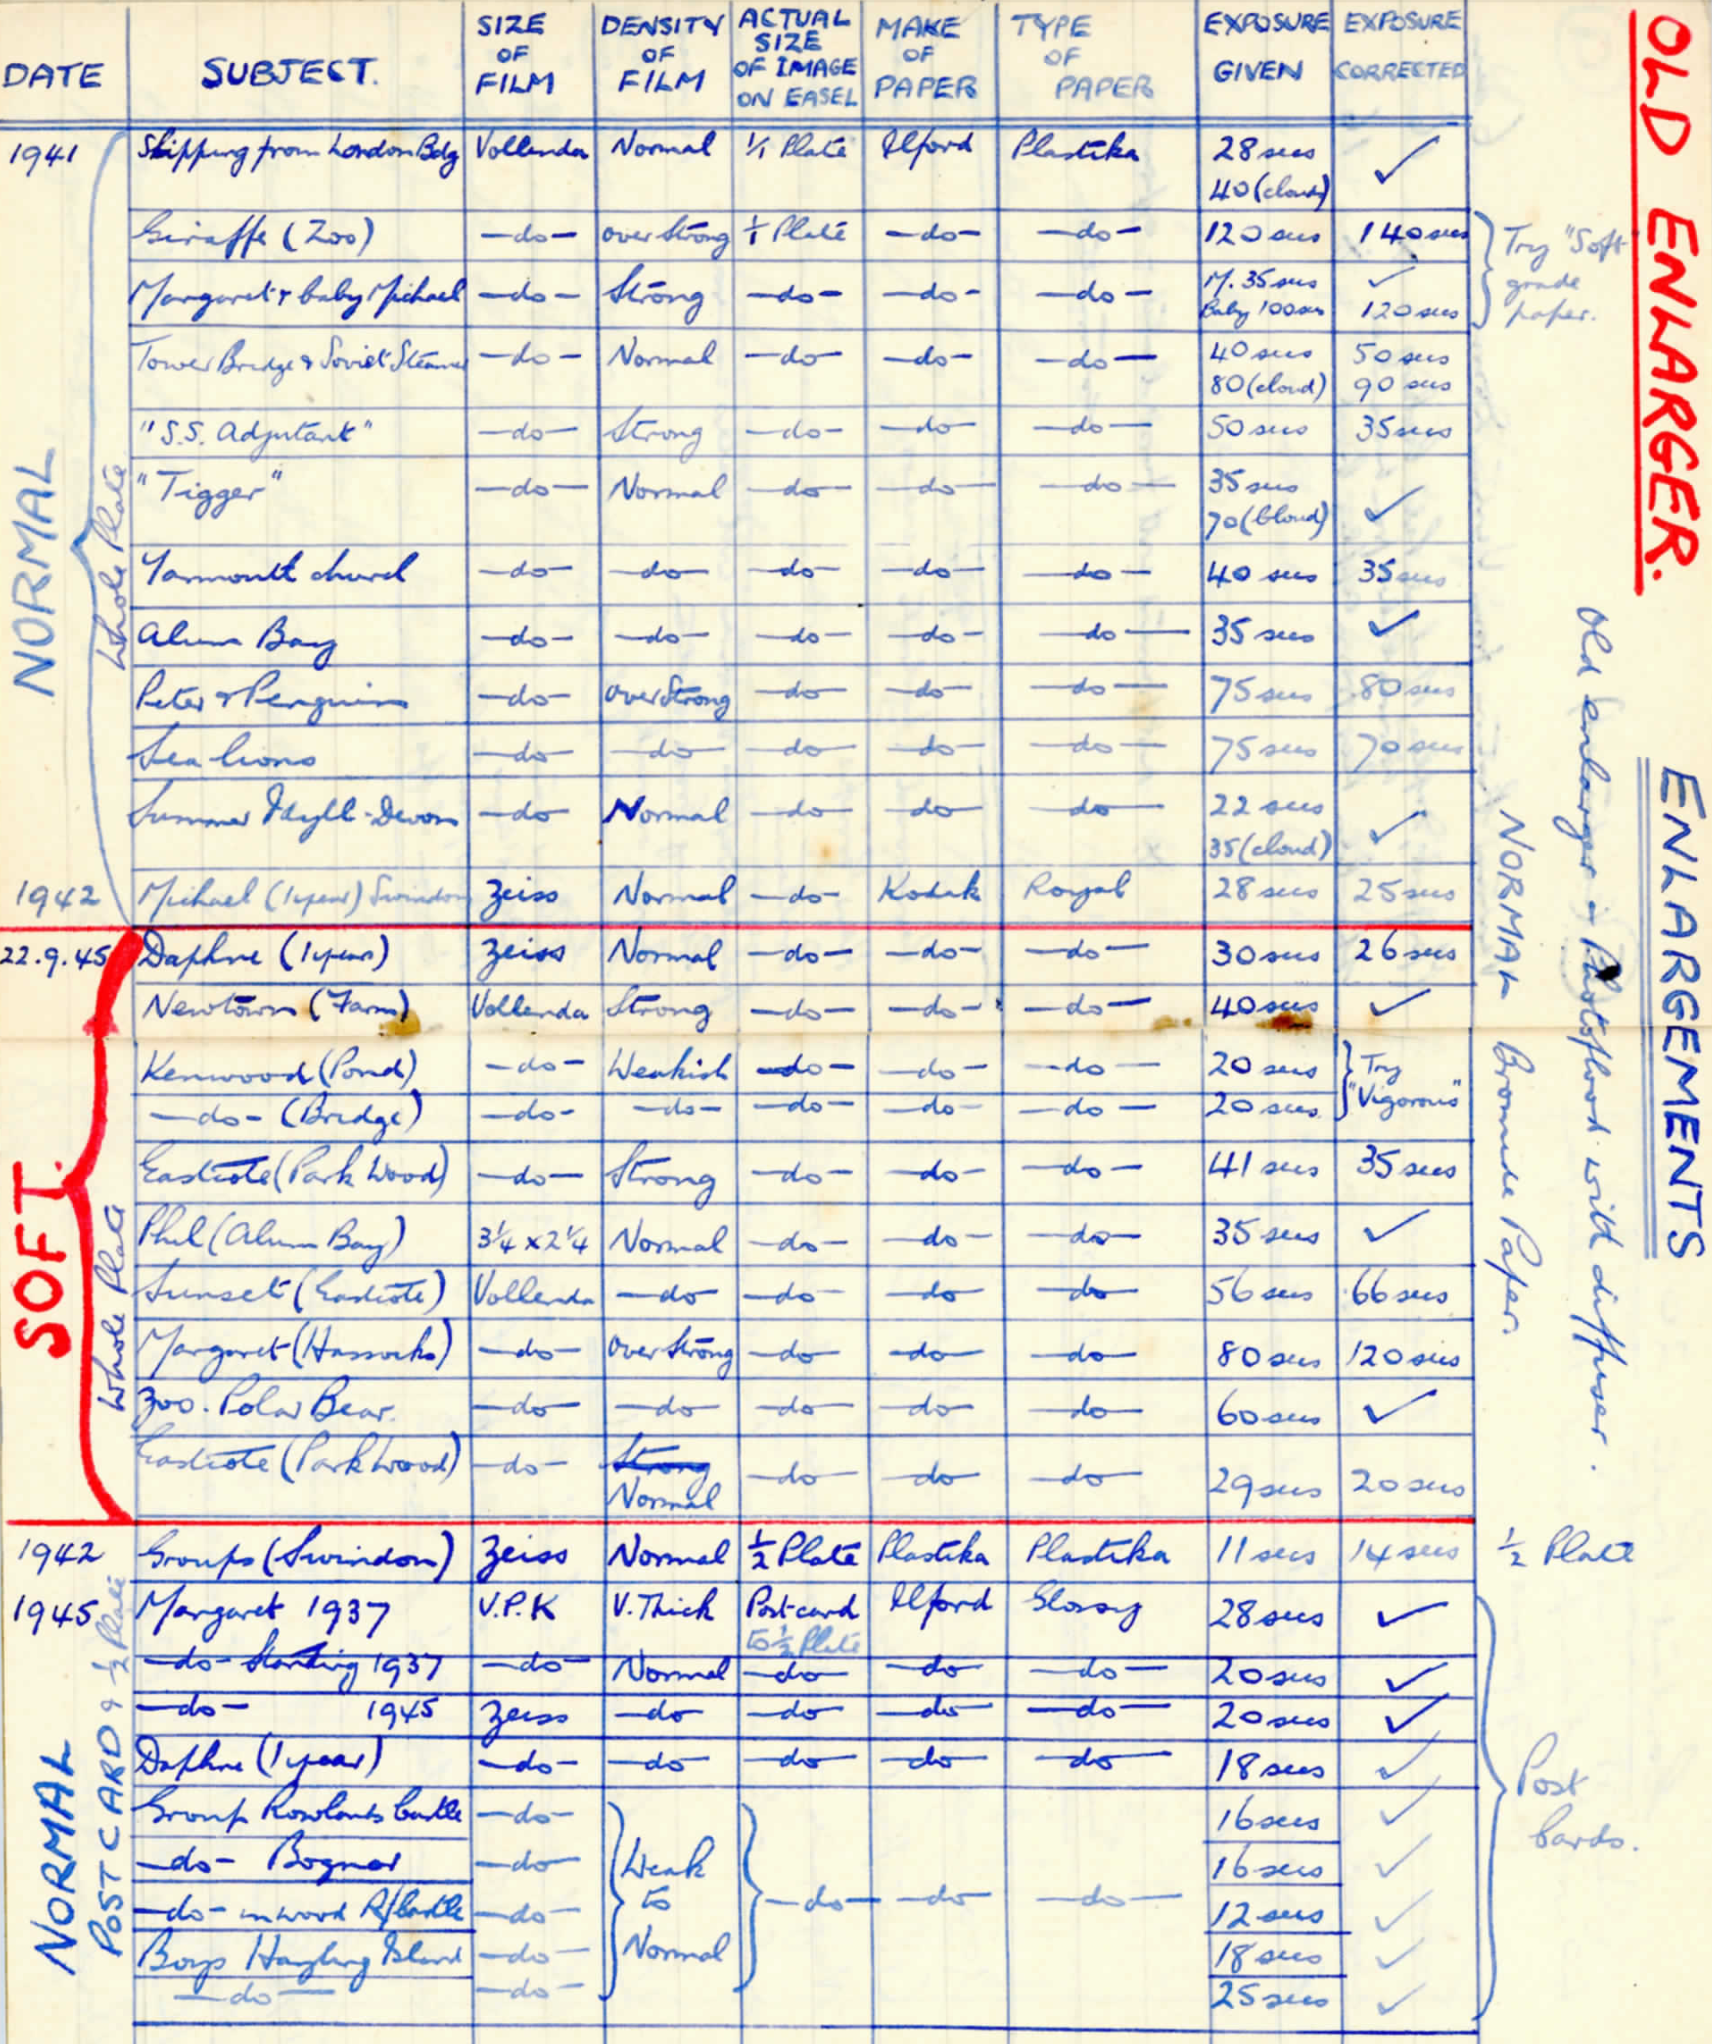 DATE SUBJECT. SIZE OF FILM DENSITY OF FILM ACTUAL SIZE OF IMAGE ON EASEL MAKE OF PAPER TYPE OF PAPER EXPOSURE GIVEN EXPOSURE CORRECTED
1941 Shipping from London Bdg Vollenda Normal 1/1 Plate Ilford Plastika 28 secs ✓
40 (cloud)
Giraffe (Zoo) —do— over Strong 1/1 Plate —do— —do— 120 secs 140 secs
Margaret & baby Michael —do— Strong —do— —do— —do— M. 35 secs ✓
Baby 100 secs 120 secs
Try "Soft"
grade
paper.
Tower Bridge & Soviet Steamer —do— Normal —do— —do— —do— 40 secs 50 secs
80 (cloud) 90 secs
"S.S. Adjutant" —do— Strong —do— —do— —do— 50 secs 35 secs
"Tigger" —do— Normal —do— —do— —do— 35 secs
70 (cloud) ✓
Yarmouth church —do— —do— —do— —do— —do— 40 secs 35 secs
Alum Bay —do— —do— —do— —do— —do— 35 secs ✓
Peter & Penguins —do— over Strong —do— —do— —do— 75 secs 80 secs
Sea lions —do— —do— —do— —do— —do— 75 secs 70 secs
Summer Idyll - Devon —do Normal —do— —do— —do— 22 secs
35 (cloud) ✓
1942 Michael (1 year) Swindon Zeiss Normal —do— Kodak Royal 28 secs 25 secs
NORMAL
Whole Plate
22.9.45 Daphne (1 year) Zeiss Normal —do— —do— —do— 30 secs 26 secs
Newtown (Farm) Vollenda Strong —do— —do— —do— 40 secs ✓
Kenwood (Pond) —do— Weakish —do— —do— —do— 20 secs Try
—do— (Bridge) —do— —do— —do— —do— —do— 20 secs "Vigorous"
Eastcote (Park Wood) —do— Strong —do— —do— —do— 41 secs 35 secs
Phil (Alum Bay) 3¼ x 2¼ Normal —do— —do— —do— 35 secs ✓
Sunset (Eastcote) Vollenda —do— —do— —do— —do— 56 secs 66 secs
Margaret (Hassocks) —do— over Strong —do— —do— —do— 80 secs 120 secs
Zoo. Polar Bear. —do— —do— —do— —do— —do— 60 secs ✓
Eastcote (Park Wood) —do— Strong —do— —do— —do— 29 secs 20 secs
Normal
SOFT.
Whole Plate
1942 Groups (Swindon) Zeiss Normal ½ Plate Plastika Plastika 11 secs 14 secs ½ Plate
1945 Margaret 1937 V.P.K V. Thick Post-card Ilford Glossy 28 secs ✓
to ½ Plate
—do— Standing 1937 —do— Normal —do— —do— —do— 20 secs ✓
—do— 1945 Zeiss —do— —do— —do— —do— 20 secs ✓
Daphne (1 year) —do— —do— —do— —do— —do— 18 secs ✓
Group Rowlands Castle —do— 16 secs ✓
—do— Bognor —do— Weak 16 secs ✓
—do— in wood R/Castle —do— to —do— —do— —do— 12 secs ✓
Boys Hayling Island —do— Normal 18 secs ✓
—do— —do— 25 secs ✓
Post
Cards.
NORMAL
POST CARD & ½ Plate
OLD ENLARGER.
ENLARGEMENTS
Old enlarger - Photoflood with diffuser.
NORMAL Bromide Paper.